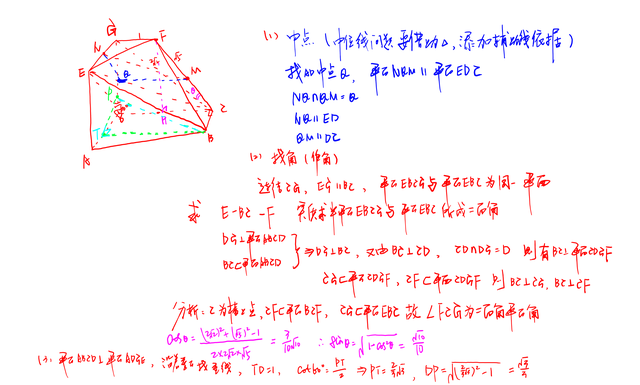 G
F
1
N
E
M
Q
C
H
B
T
A
(1) 中点 (中位线问题要借助△, 添加辅助线依据)
找AD中点Q, 平面NQM∥平面EDC
NQ∩QM=Q
NQ∥ED
QM∥DC
(2) 找角 (作角)
连结CG, EG∥BC, 平面EBCG与平面EBC为同一平面
求 E-BC-F 实质求平面EBCG与平面FBC所成二面角
DG⊥平面ABCD
BC⊂平面ABCD } ⇒DG⊥BC, 又由BC⊥CD, CD∩DG=D 则有BC⊥平面CDGF
CG⊂平面CDGF, CF⊂平面CDGF 则BC⊥CG, BC⊥CF
分析: C为棱上点, CF⊂平面BCF, CG⊂平面EBC 故∠FCG为二面角平面角
cosθ= (2√2)²+(√5)²-1 / 2×2√2×√5 = 3/10 √10 ∴ sinθ=√1-cos²θ = √10/10
(3) 平面ABCD⊥平面ADGE, TD=1, ⇒PT=